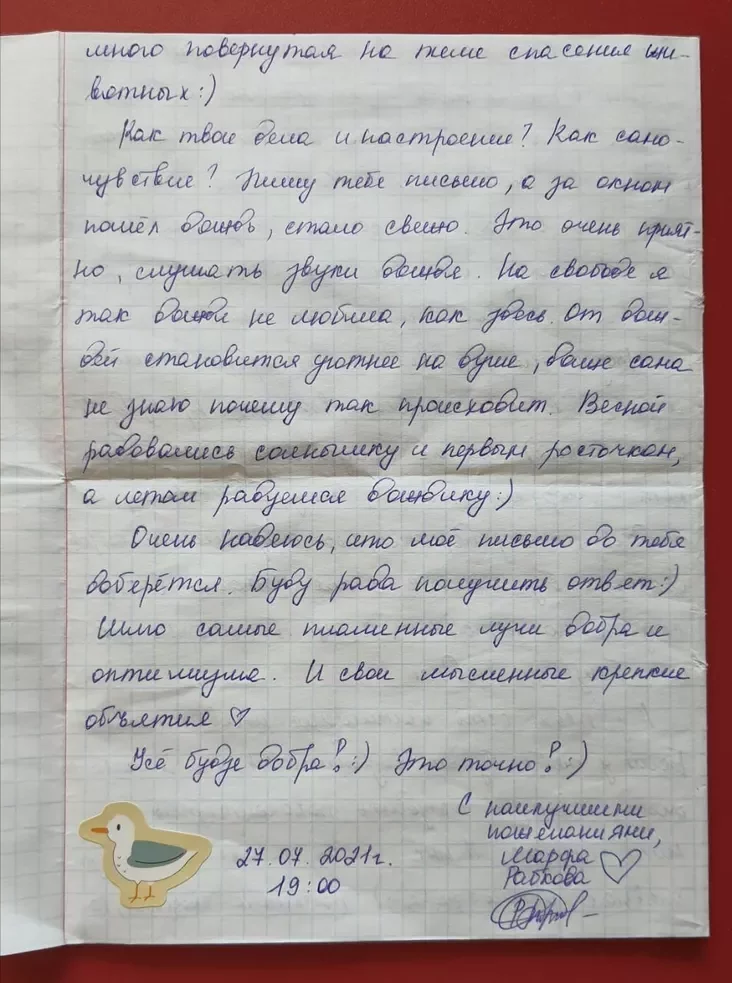 много повернутая на теме спасения жи-
вотных:)
Как твои дела и настроение? Как само-
чувствие? Пишу тебе письмо, а за окном
пошёл дождь, стало свежо. Это очень прият-
но, слушать звуки дождя. На свободе я
так дожди не любила, как здесь. От дож-
дей становится уютнее на душе, даже сама
не знаю почему так происходит. Весной
радовались солнышку и первым росточкам,
а летом радуемся дождику:)
Очень надеюсь, что моё письмо до тебя
доберётся. Буду рада получить ответ:)
Шлю самые пламенные лучи добра и
оптимизма. И свои мысленные крепкие
объятия ♡
Усё будзе добра!:) Это точно!:)
С наилучшими
пожеланиями,
Марфа ♡
Рабкова
27.07.2021г.
19:00